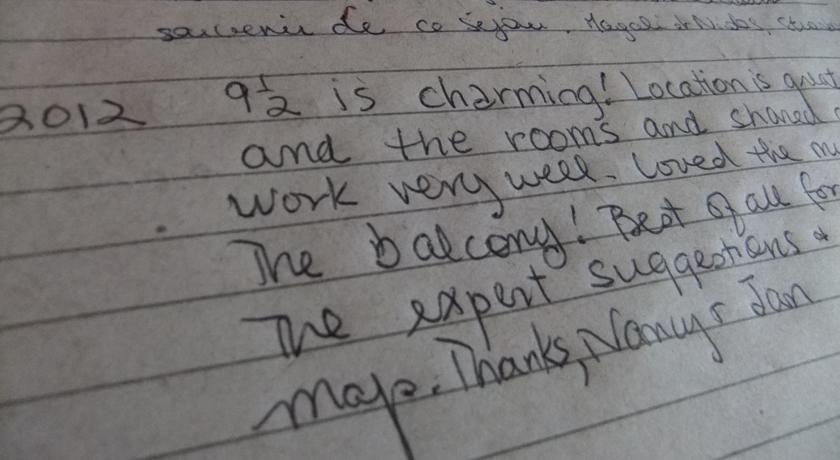 souvenir de ce séjour. Magali & Nicolas,
2012 9½ is charming! Location is great
and the rooms and shared
work very well. Loved the
The balcony! Best of all for
The expert suggestions &
map. Thanks, Nancy & Jan